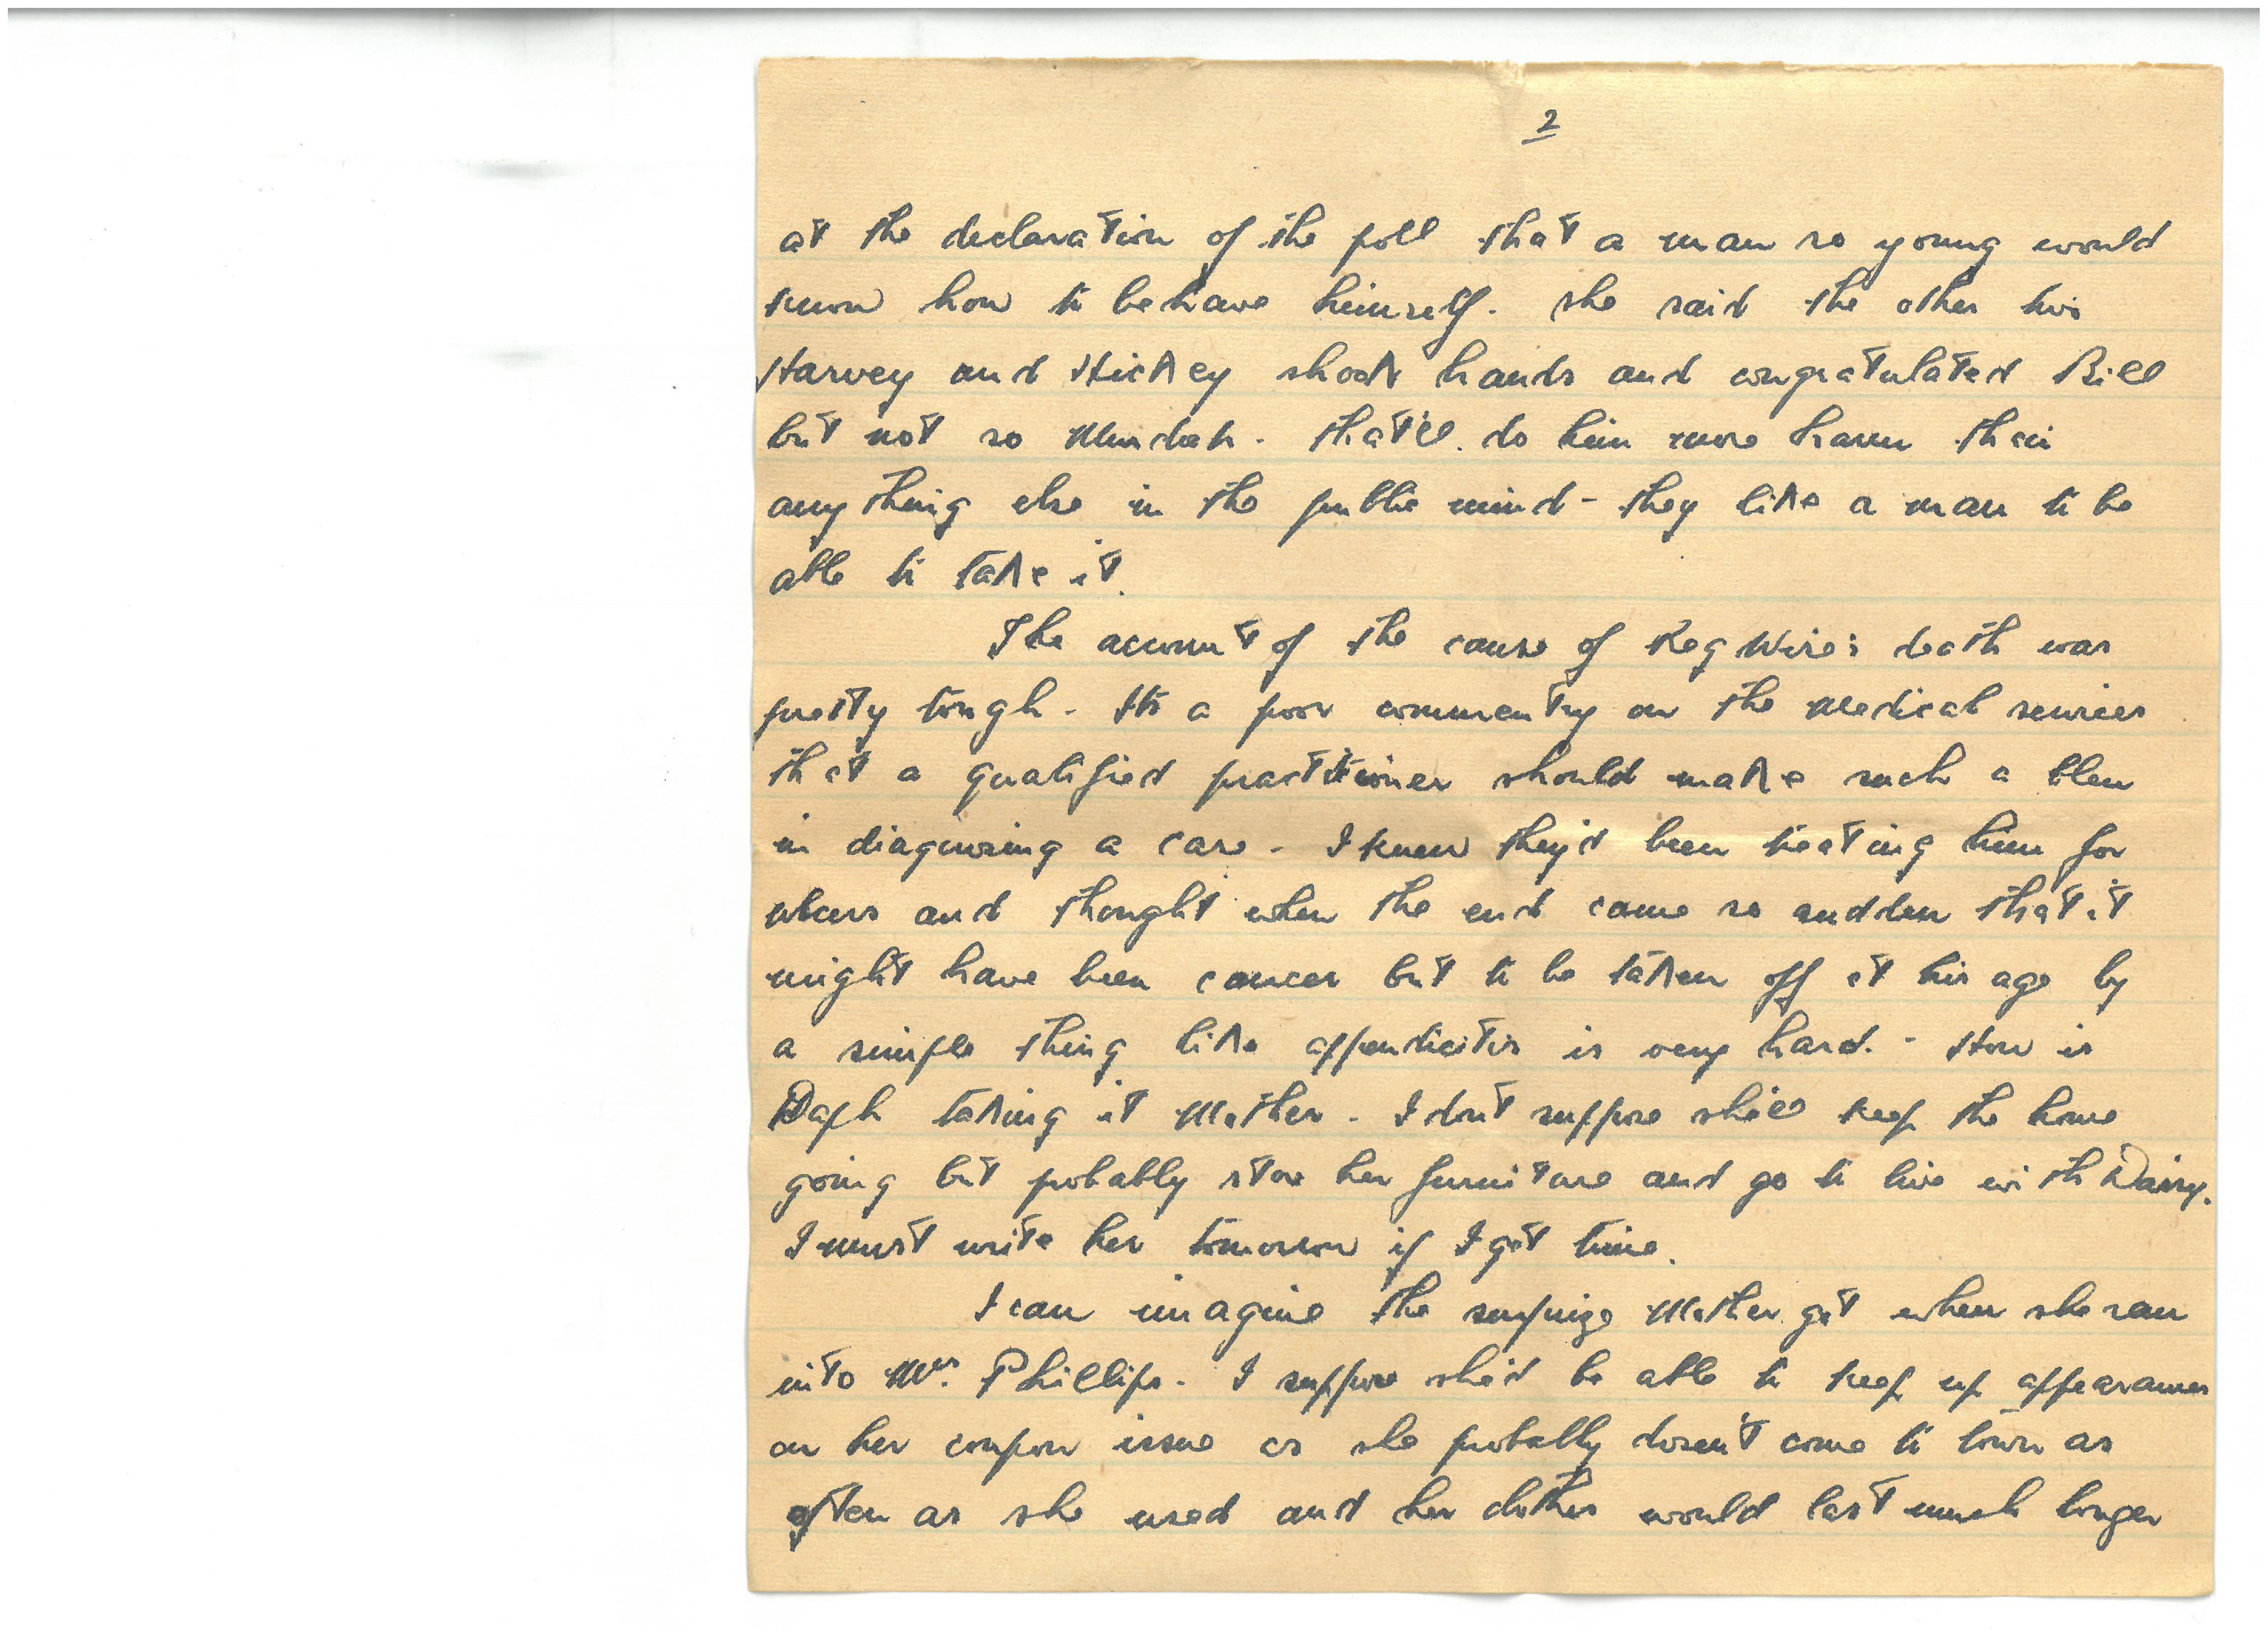 2
at the declaration of the poll that a man so young would
know how to behave himself. She said the other two
Harvey and Hickey shook hands and congratulated Bill
but not so. that'll do him more harm than
anything else in the public mind - they like a man to be
able to take it.
The account of the cause of Reg Wise's death was
pretty tough. Its a poor commentry on the medical services
that a qualified practitioner should make such a blew
in diagnosing a case. I knew they'd been treating him for
ulcers and thought when the end came so sudden that it
might have been cancer but to be taken off at his age by
a simple thing like appendicitis is very hard. - How is
Daph taking it Mother. I dont suppose she'll keep the home
going but probably store her furniture and go to live with Dairy.
I must write her tomorrow if I get time.
I can imagine the surprize Mother got when she ran
into Mrs. Phillips. I suppose she'd be able to keep up appearances
on her coupon issue as she probably doesn't come to town as
often as she used and her clothes would last much longer